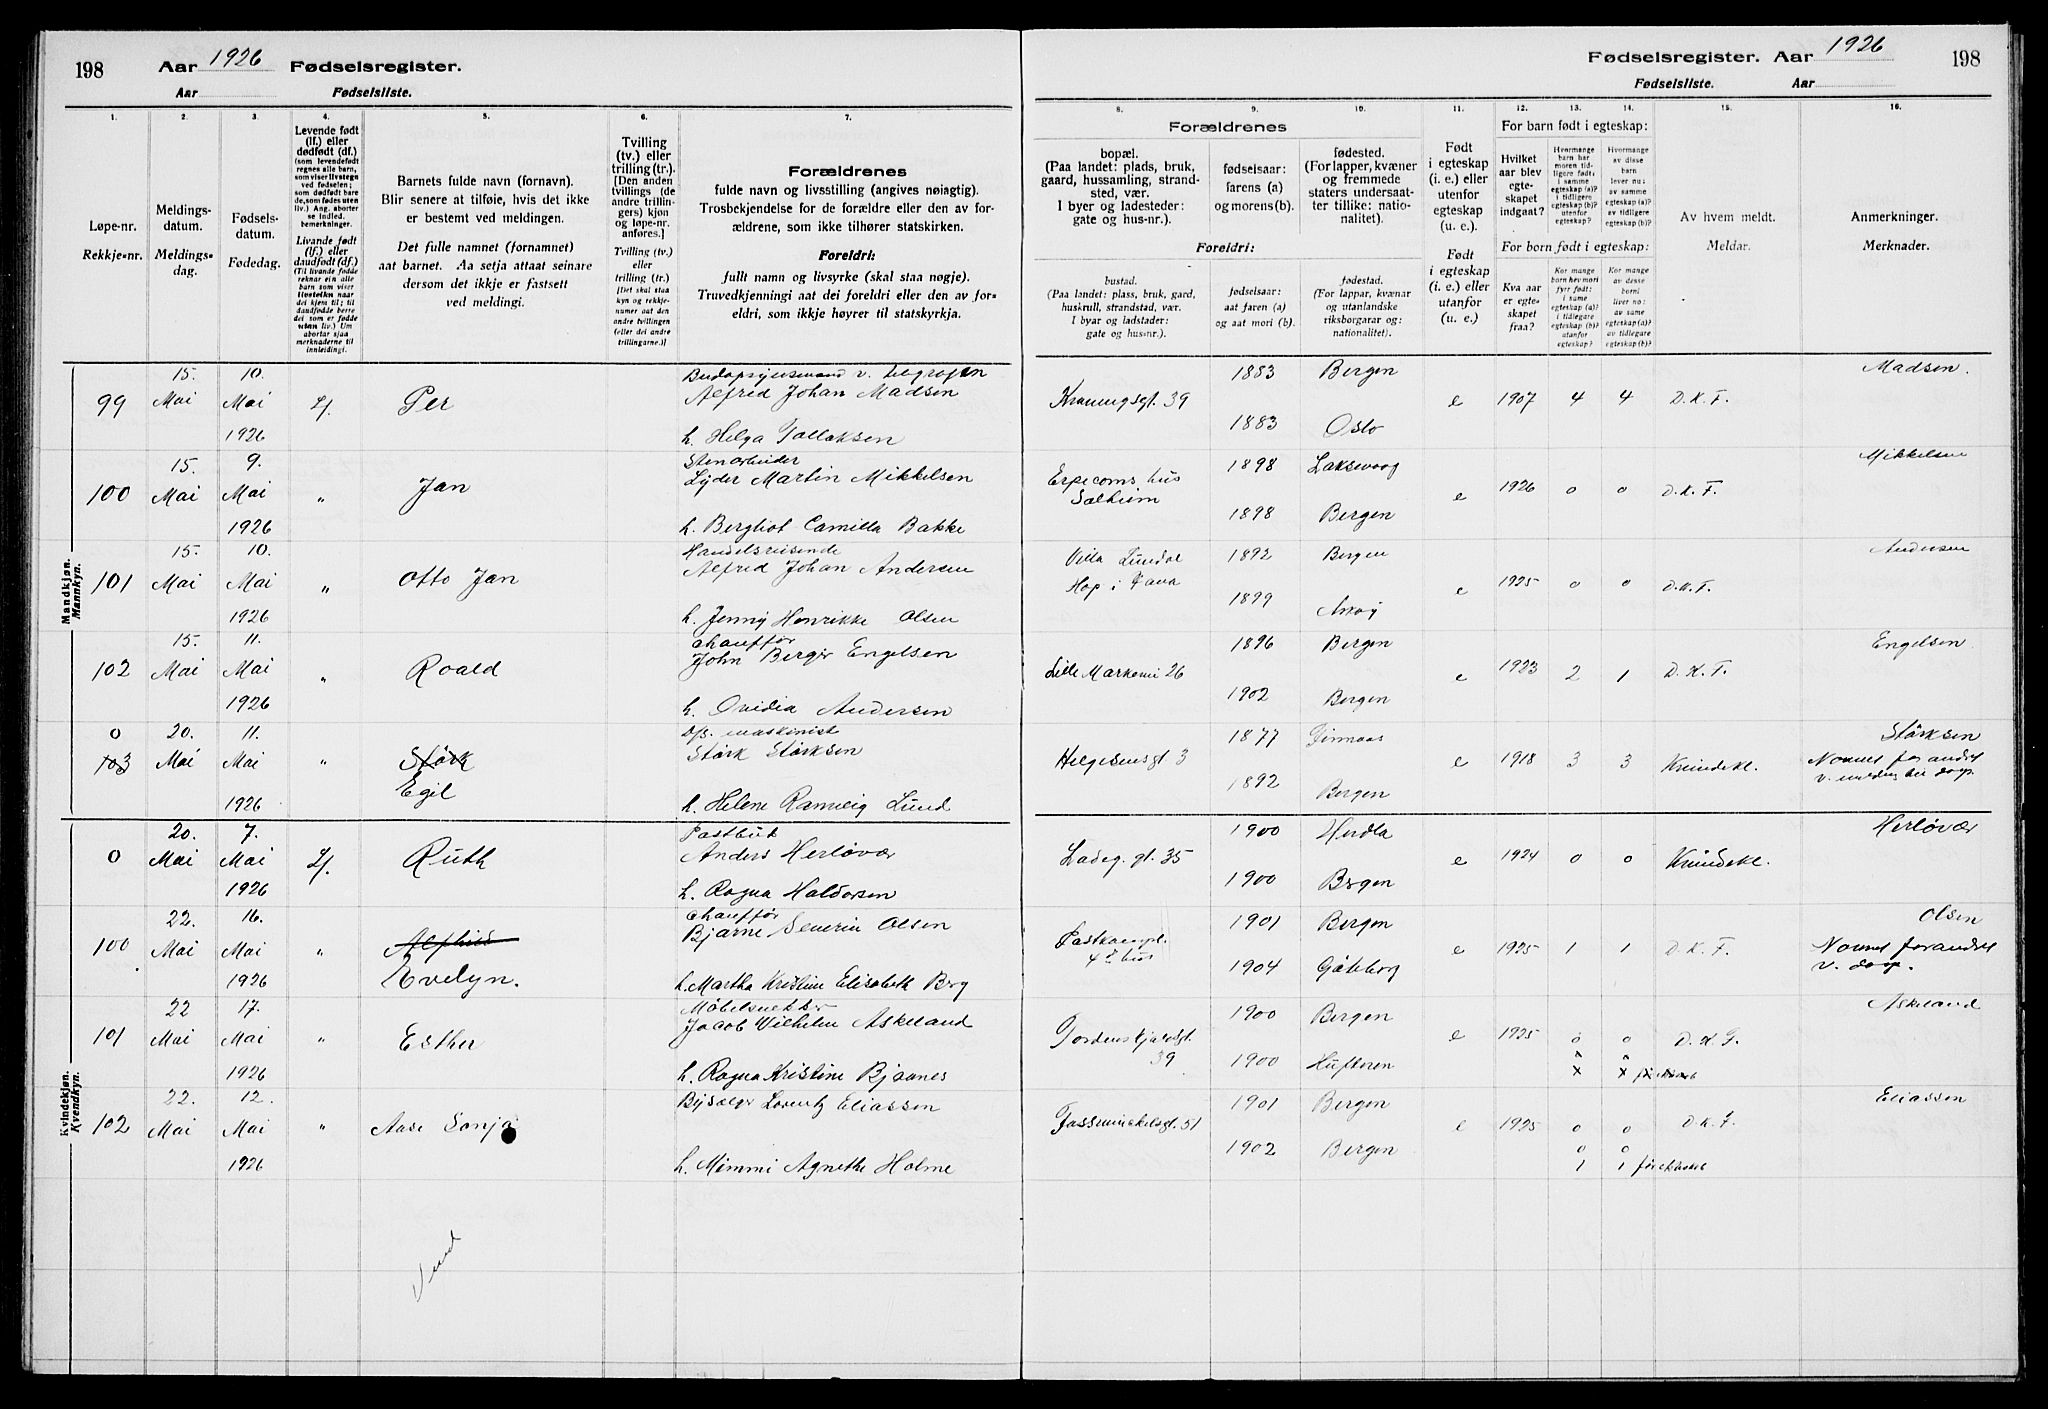 198 Aar 1926 Fødselsregister.
Aar Fødselsliste.
Fødselsregister. Aar 1926 198
Fødselsliste. Aar
1. 2. 3. 4. 5. 6. 7.
Løpe-nr.
Rekkje-nr.
Meldings-
datum.
Meldings-
dag.
Fødsels-
datum.
Fødedag.
Levende født
(lf.) eller
dødfødt (df.)
(som levendefødt
regnes alle barn,
som viser livstegn
ved fødselen;
som dødfødt bare
de, som fødes uten
liv.) Ang. aborter
se indled.
bemerkninger.
Livande født
(lf.) eller
daudfødt (df.)
(Til livande fødde
reknar ein alle
barn som viser
livsteikn naar
dei kjem til; til
daudfødde berre
dei som er fødde
utan liv.) Um
abortar sjaa
merknaderne til
innleidingi.
Barnets fulde navn (fornavn).
Blir senere at tilføie, hvis det ikke
er bestemt ved meldingen.
Det fulle namnet (fornamnet)
aat barnet. Aa setja attaat seinare
dersom det ikkje er fastsett
ved meldingi.
Tvilling
(tv.) eller
trilling (tr.).
[Den anden
tvillings (de
andre trillin-
gers) kjøn
og løpe-nr.
anføres.]
Tvilling (tv.)
eller
trilling (tr.)
[Det skal staa
kyn og rekkje-
numer aat den
andre tvillingen
(eller dei andre
trillingarne.)]
Forældrenes
fulde navn og livsstilling (angives nøiagtig).
Trosbekjendelse for de forældre eller den av for-
ældrene, som ikke tilhører statskirken.
Foreldri:
fullt namn og livsyrke (skal staa nøgje).
Truvedkjenningi aat dei foreldri eller den av for-
eldri, som ikkje høyrer til statskyrkja.
8. 9. 10. 11. 12. 13. 14. 15. 16.
Forældrenes
bopæl.
(Paa landet: plads, bruk,
gaard, hussamling, strand-
sted, vær.
I byer og ladesteder:
gate og hus-nr.).
fødselsaar:
farens (a)
og morens (b).
fødested.
(For lapper, kvæner
og fremmede
staters undersaat-
ter tillike: natio-
nalitet).
Foreldri:
bustad.
(Paa landet: plass, bruk, gard,
huskrull, strandstad, vær.
I byar og ladstader:
gate og hus-nr.).
fødselsaar:
aat faren (a)
og aat mori (b).
fødestad.
(For lappar, kvænar
og utanlandske
riksborgarar og:
nationalitet).
Født
i egteskap
(i. e.) eller
utenfor
egteskap
(u. e.).
Født
i egteskap
(i. e.) eller
utanfor
(u. e.).
For barn født i egteskap:
Hvilket
aar blev
egte-
skapet
indgaat?
Hvormange
barn har
moren tid-
ligere født:
i samme
egteskap (a)?
i tidligere
egteskap (b)?
utenfor
egteskap?
Hvormange
av disse
barn
lever nu:
av samme
egteskap (a)?
av tidligere
egteskap (b)?
For born født i egteskap:
Kva aar
er egte-
skapet
fraa?
Kor mange
barn hev mori
fyrr født:
i same
egteskap (a)?
i tidlegare
egteskap (b)?
utanfor
egteskap?
Kor mange
av desse
borni
liver no:
av same
egteskap (a)?
av tidlegare
egteskap (b)?
Av hvem meldt.
Meldar.
Anmerkninger.
Merknader.
Mandkjøn.
Mannkyn.
99 15. Mai 10. Mai 1926 Lf. Per
Alfred Johan Madsen
h. Helga Tallaksen
Kroningsgt. 39 1883 Bergen 1883 Oslo e 1907 4 4 D.K.F. Madsen.
100 15. Mai 9. Mai 1926 " Jan
Stenarbeider
Lyder Martin Mikkelsen
h. Bergliot Camilla Bakke
hus Solheim 1898 Laksevaag 1898 Bergen e 1926 0 0 D.K.F. Mikkelsen
101 15. Mai 10. Mai 1926 " Otto Jan
Handelsreisende
Alfred Johan Andersen
h. Jenny Henrikke Olsen
Villa Lundal
Hop i Fana 1892 Bergen 1899 Askøy e 1925 0 0 D.K.F. Andersen
102 15. Mai 11. Mai 1926 " Roald
Chauffør
John Berger Engelsen
h. Ovidia Andersen
Lille Markevei 26 1896 Bergen 1902 Bergen e 1923 2 1 D.K.F. Engelsen
0 103 20. Mai 11. Mai 1926 " Størk
Egil
maskinist
Størk Størksen
h. Helene Ranveig Lund
Helgesensgt 3 1877 Finnaas 1892 Bergen e 1918 3 3 Kvindekl. Størksen
Navnet
Kvindekjøn.
Kvendkyn.
0 20. Mai 7. Mai 1926 Lf. Ruth
Postbud
Anders Herløvær
h. Ragna Haldorsen
Ladeg. gt. 35 1900 Herdla 1900 Bergen e 1924 0 0 Kvindekl. Herløvær
100 22. Mai 16. Mai 1926 "
Evelyn.
Chauffør
Bjarne Severin Olsen
h. Martha Kristine Elisabeth Berg
1901 Bergen 1904 Gøteborg e 1925 1 1 D.K.F. Olsen
Navnet forandret
v. daap.
101 22 Mai 17. Mai 1926 " Esther
Møbelsnekker
Jacob Wilhelm Askeland
h. Ragna Kristine Bjånes
Tordenskjoldsgt.
39 1900 Bergen 1900 Huftaren e 1925 0 0 Askeland
102 22. Mai 12. Mai 1926 " Aase Sonja
Lorentz Eliassen
h. Mimmi Agnethe Holme
Fosswinckelsgt. 51 1901 Bergen 1902 Bergen e 1925 0 0 D.K.F. Eliassen
0 0
1 1 før ekteskab